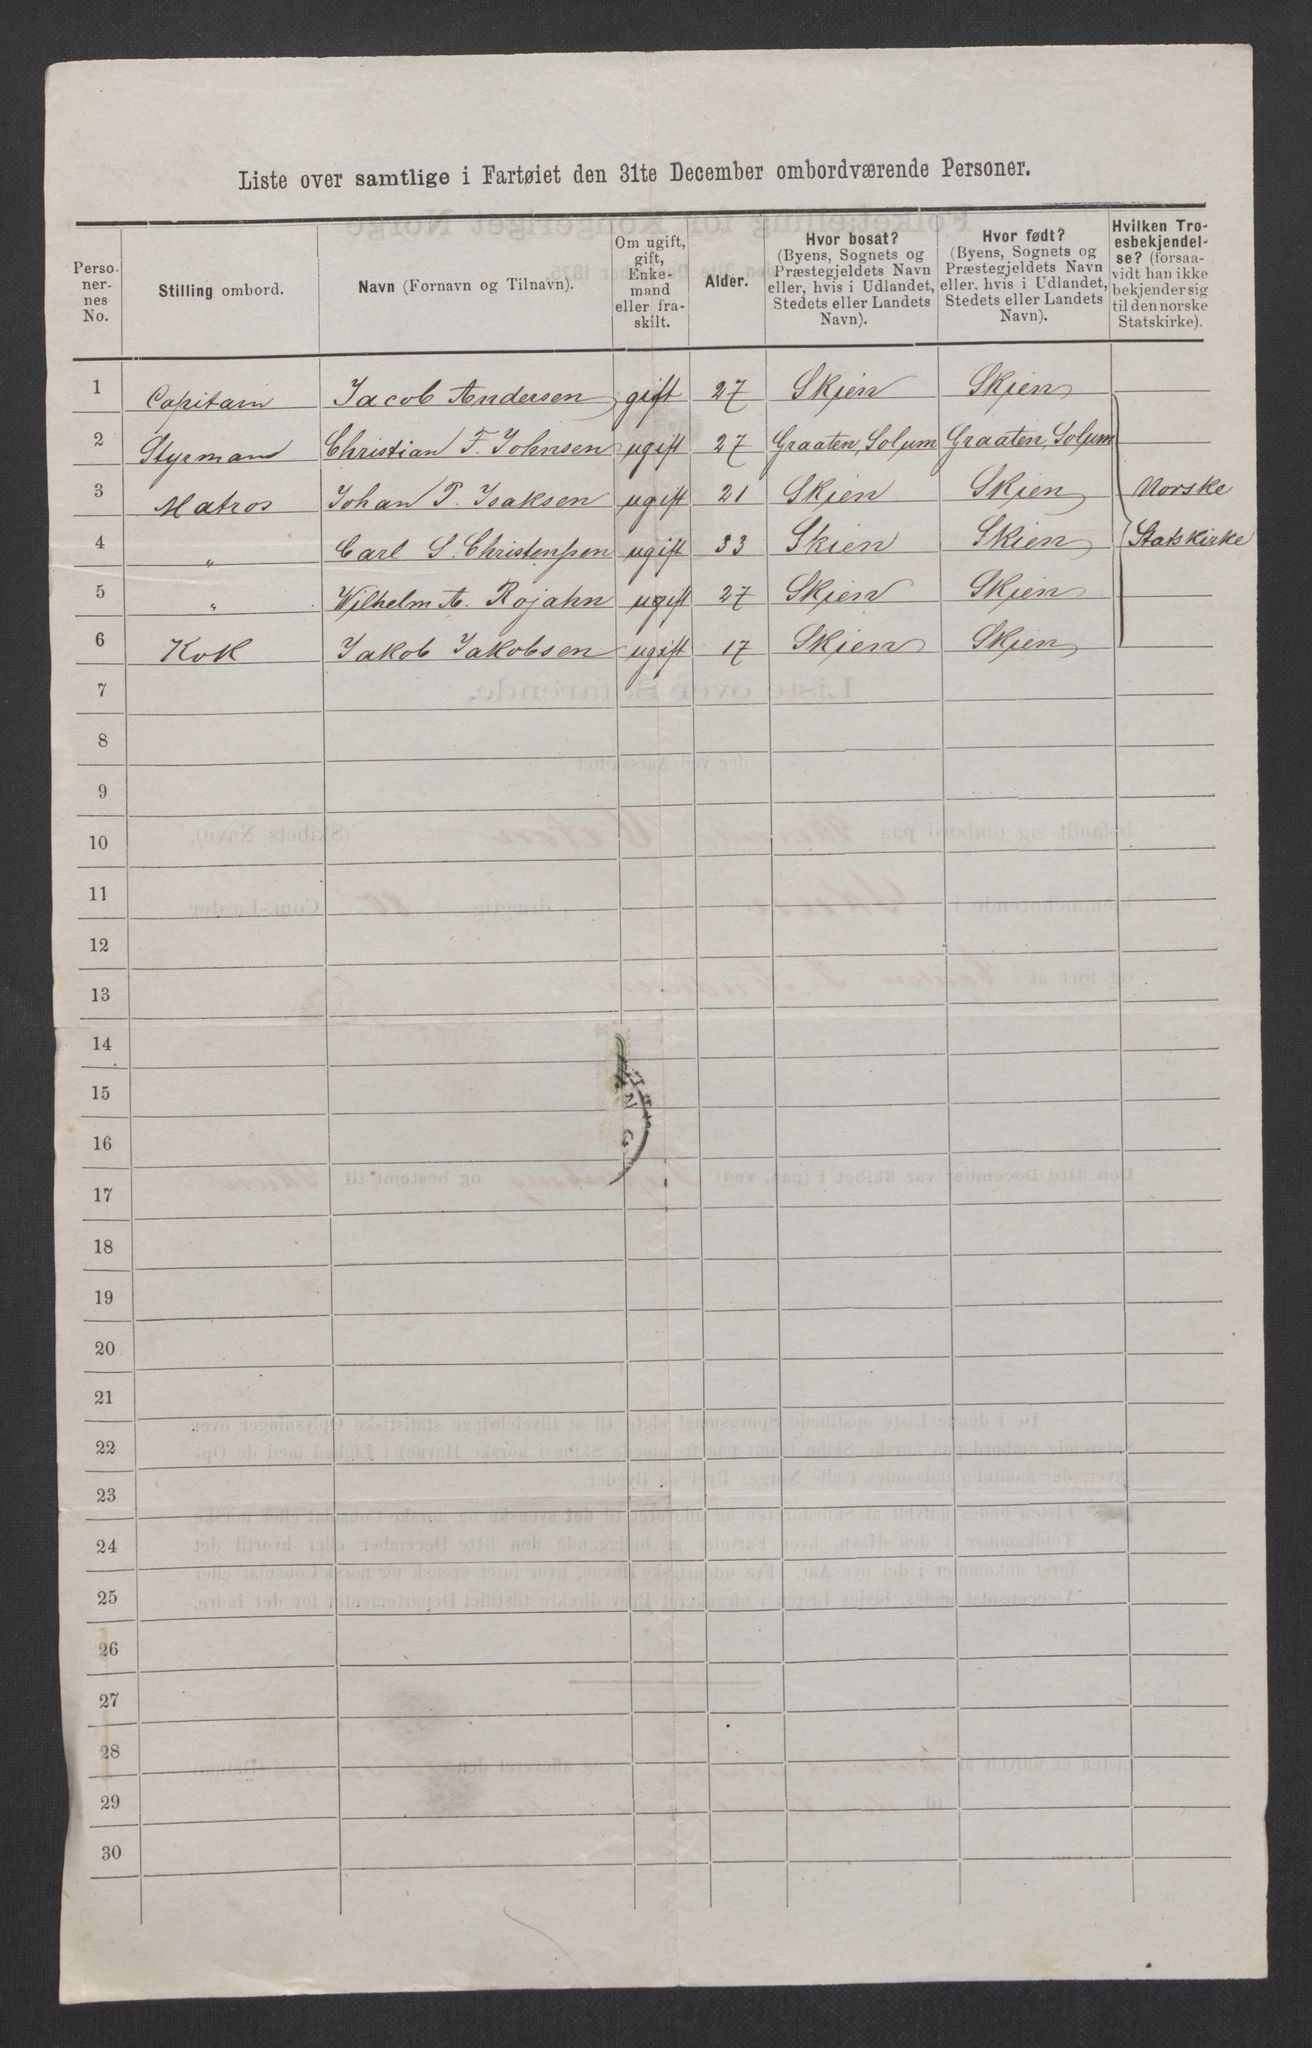 Liste over samtlige i Fartøiet den 31te December ombordværende Personer.
Perso-
ner-
nes
No.
Stilling ombord.
Navn (Fornavn og Tilnavn).
Om ugift,
gift,
Enke-
mand
eller fra-
skilt.
Alder.
Hvor bosat?
(Byens, Sognets og
Præstegjeldets Navn
eller, hvis i Udlandet,
Stedets eller Landets
Navn).
Hvor født?
(Byens, Sognets og
Præstegjeldets Navn
eller, hvis i Udlandet,
Stedets eller Landets
Navn).
Hvilken Tro-
esbekjendel-
se? (forsaa-
vidt han ikke
bekjender sig
til den norske
Statskirke).
1 Capitain Jacob Andersen gift 27 Skien Skien
2 Styrmand Christian F. Johnsen ugift 27 Graaten, Solum Graaten, Solum
3 Matros Johan P. Isaksen ugift 21 Skien Skien Norske
4 " Carl S. Christenssen ugift 33 Skien Skien Statskirke
5 " Wilhelm A. Rojahn ugift 27 Skien Skien
6 Kok Jakob Jakobsen ugift 17 Skien Skien
7
8
9
10
11
12
13
14
15
16
17
18
19
20
21
22
23
24
25
26
27
28
29
30